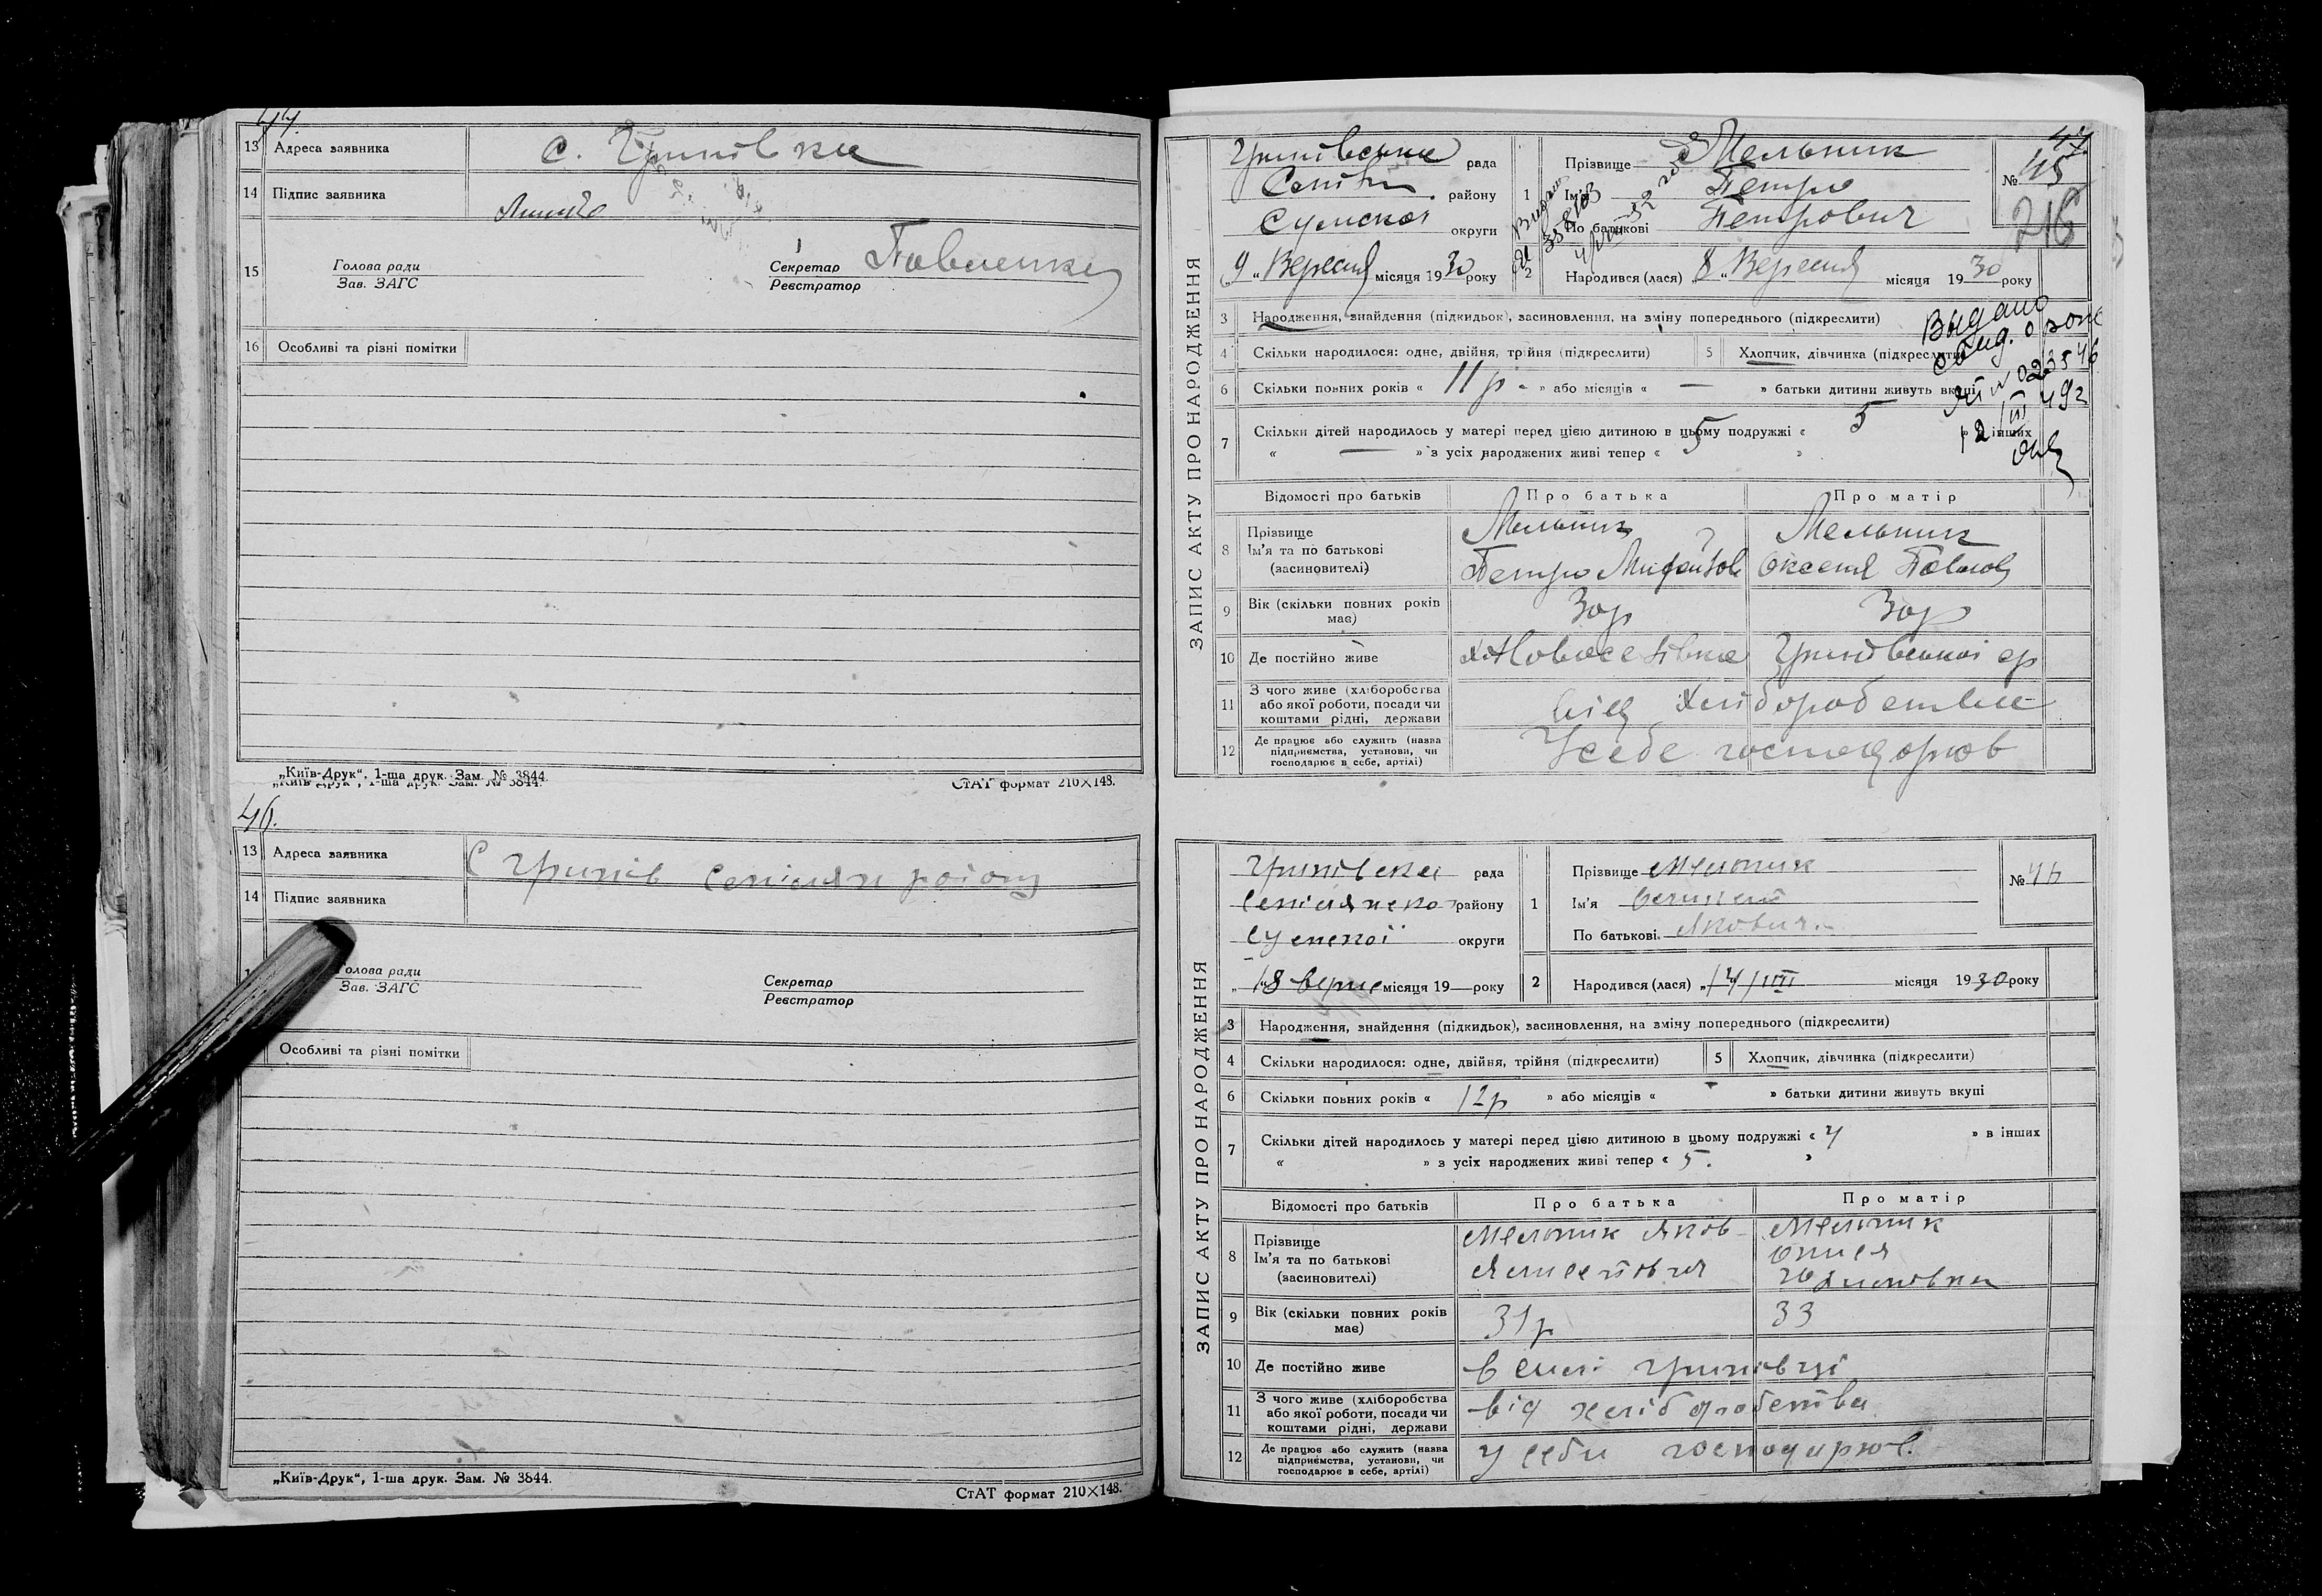 44.
13 Адреса заявника с. Грунівка
14 Підпис заявника
15 Голова ради
Зав. ЗАГС
Секретар Павленко
Реєстратор
16 Особливі та різні помітки
„Київ-Друк“, 1-ша друк. Зам. № 3844.
„Київ-Друк“, 1-ша друк. Зам. № 3844.
СтАТ формат 210×148.
46.
13 Адреса заявника С Грунів району
14 Підпис заявника
Голова ради
Зав. ЗАГС
Секретар
Реєстратор
Особливі та різні помітки
„Київ-Друк“, 1-ша друк. Зам. № 3844.
СтАТ формат 210×148.
ЗАПИС АКТУ ПРО НАРОДЖЕННЯ
Грунівська рада
району
Сумской округи
„9„ Вересня місяця 1930 року
1 Прізвище Мельник
Ім'я Петро
По батькові Петрович
№ 45
216
2 Народився (лася) „8„ Вересня місяця 1930 року
3 Народження, знайдення (підкидьок), засиновлення, на зміну попереднього (підкреслити)
Выдано
4 Скільки народилося: одне, двійня, трійня (підкреслити)
5 Хлопчик, дівчинка (підкреслити)
6 Скільки повних років « 11 р. » або місяців « — » батьки дитини живуть вкупі
7 Скільки дітей народилось у матері перед цією дитиною в цьому подружжі « 5 » в інших
« — » з усіх народжених живі тепер « 5 »
Відомості про батьків Про батька Про матір
8 Прізвище
Ім'я та по батькові
(засиновителі)
Мельник
Петро
Мельник
Оксенія Павлов
9 Вік (скільки повних років має) 30р 30р
10 Де постійно живе х. Новоселівка Грунівської ср
11 З чого живе (хліборобства або якої роботи, посади чи коштами рідні, держави
від Хліборобства
12 Де працює або служить (назва підприємства, установи, чи господарює в себе, артілі)
У себе господарюв
ЗАПИС АКТУ ПРО НАРОДЖЕННЯ
Грунівска рада
району
Сумскої округи
„18 верис місяця 19 року
1 Прізвище Мельник
Ім'я
По батькові Якович.
№ 46
2 Народився (лася) „14/VIII місяця 1930 року
3 Народження, знайдення (підкидьок), засиновлення, на зміну попереднього (підкреслити)
4 Скільки народилося: одне, двійня, трійня (підкреслити)
5 Хлопчик, дівчинка (підкреслити)
6 Скільки повних років « 12р » або місяців « » батьки дитини живуть вкупі
7 Скільки дітей народилось у матері перед цією дитиною в цьому подружжі « 4 » в інших
« » з усіх народжених живі тепер « 5. »
Відомості про батьків Про батька Про матір
8 Прізвище
Ім'я та по батькові
(засиновителі)
Мельник Яков
Мельник
9 Вік (скільки повних років має) 31р 33
10 Де постійно живе в селі Грунівці
11 З чого живе (хліборобства або якої роботи, посади чи коштами рідні, держави
від хліборобства
12 Де працює або служить (назва підприємства, установи, чи господарює в себе, артілі)
у себи господарюв.